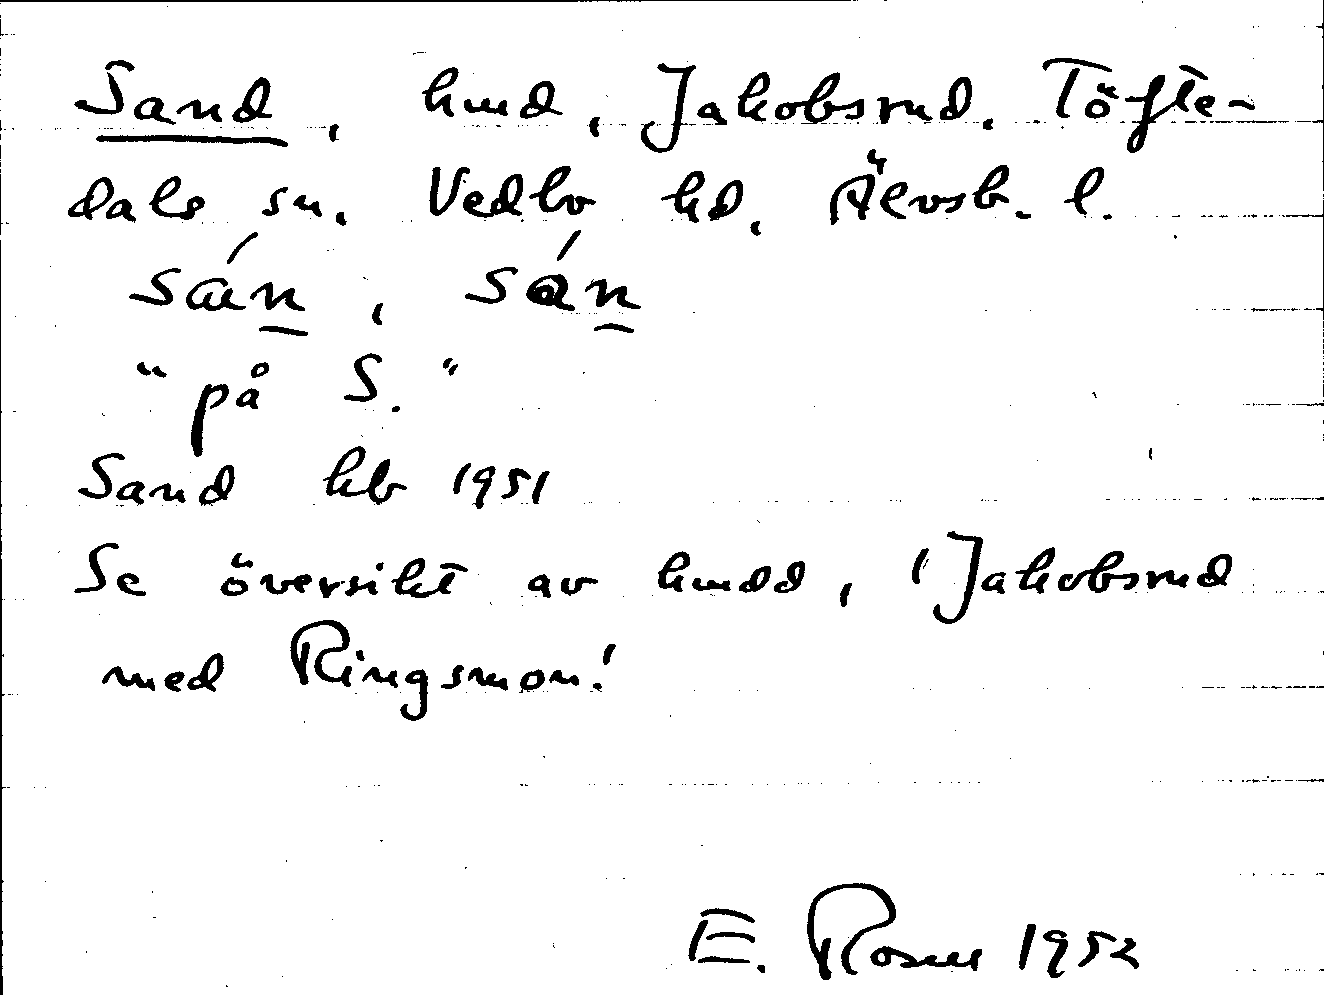 Sand, hmd, Jakobsrud. Töfte-
dals sn. Vedbo hd, Älvsb. l.
sán, sán
"på S."
Sand hb 1951
Se översikt av hmdd, 'Jakobsrud
med Ringsmon.'
E. Rosell 1952